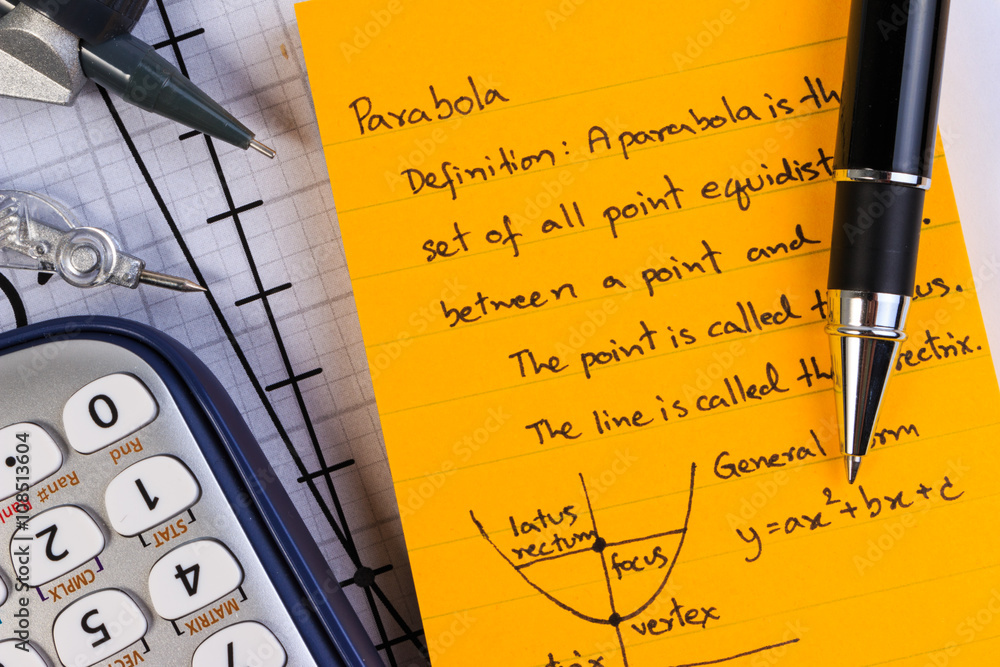 Parabola
Definition: A parabola is th
set of all point equidist
between a point and
The point is called t us.
The line is called th rectrix.
General rm
y=ax²+bx+c
latus
rectum
focus
vertex
trix
0
Rnd
.
Ran#
1
STAT
2
CMPLX
4
MATRIX
5
VECT
7
Adobe Stock | #108513604